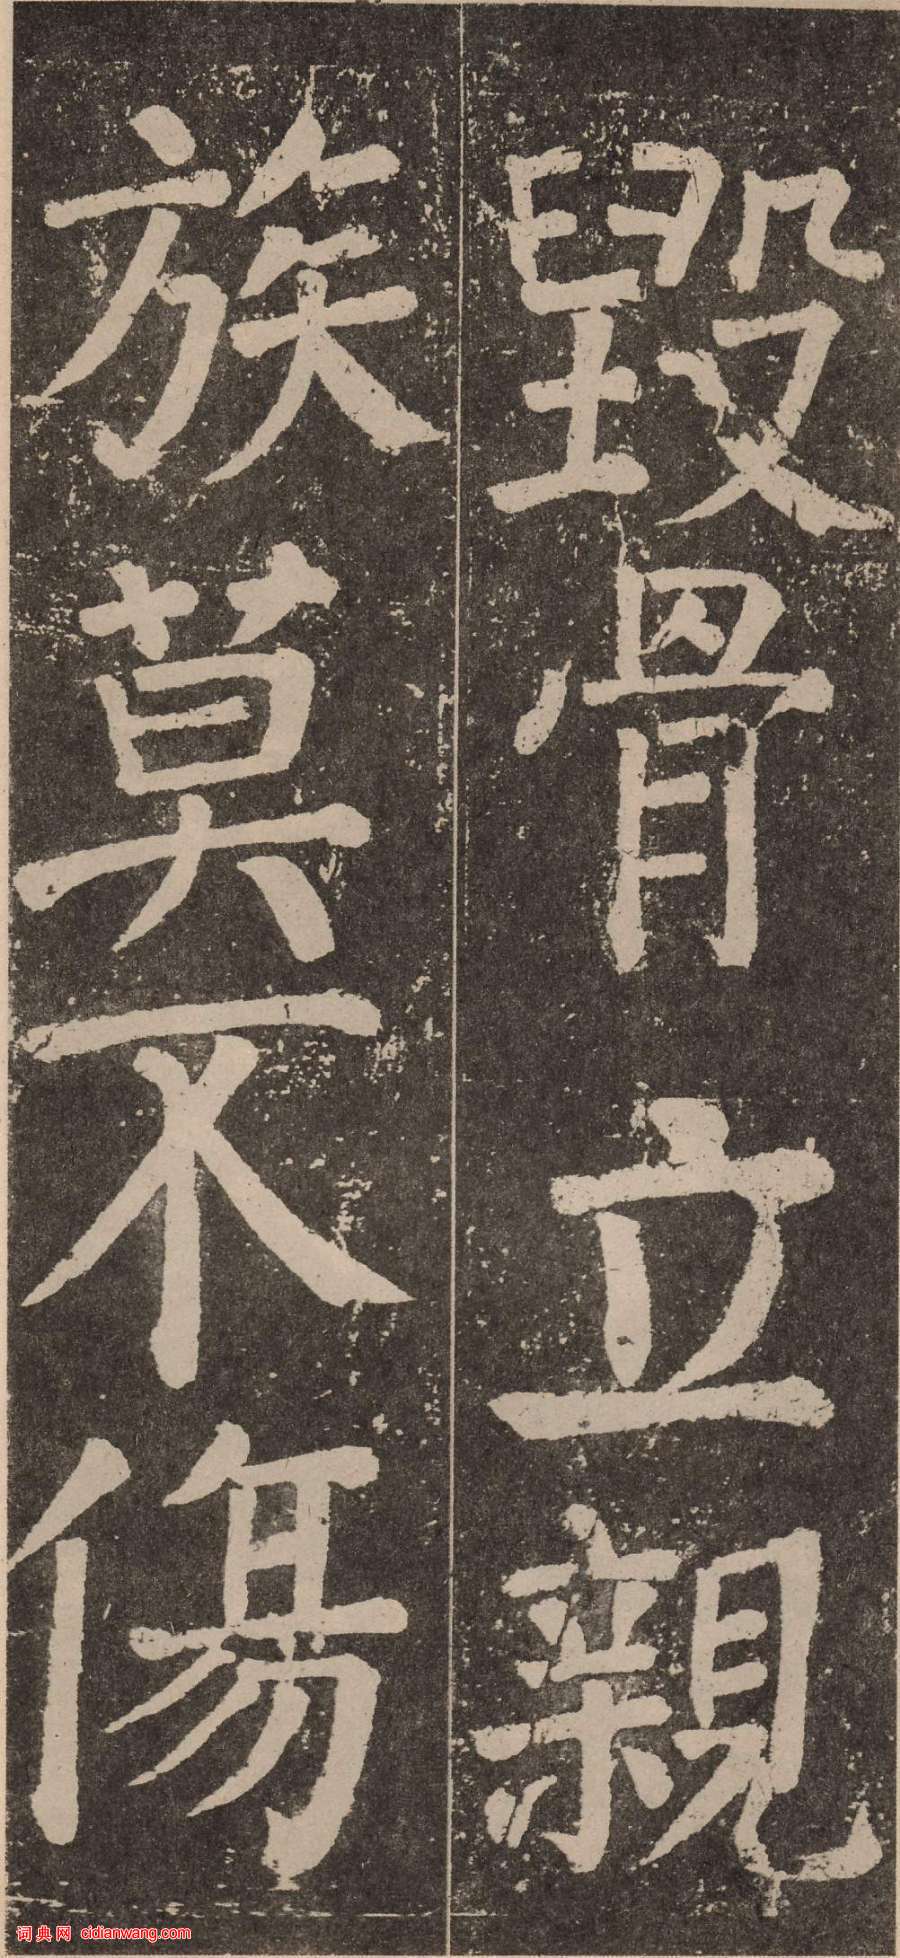 毀骨立親
族莫不傷
词典网 cidianwang.com